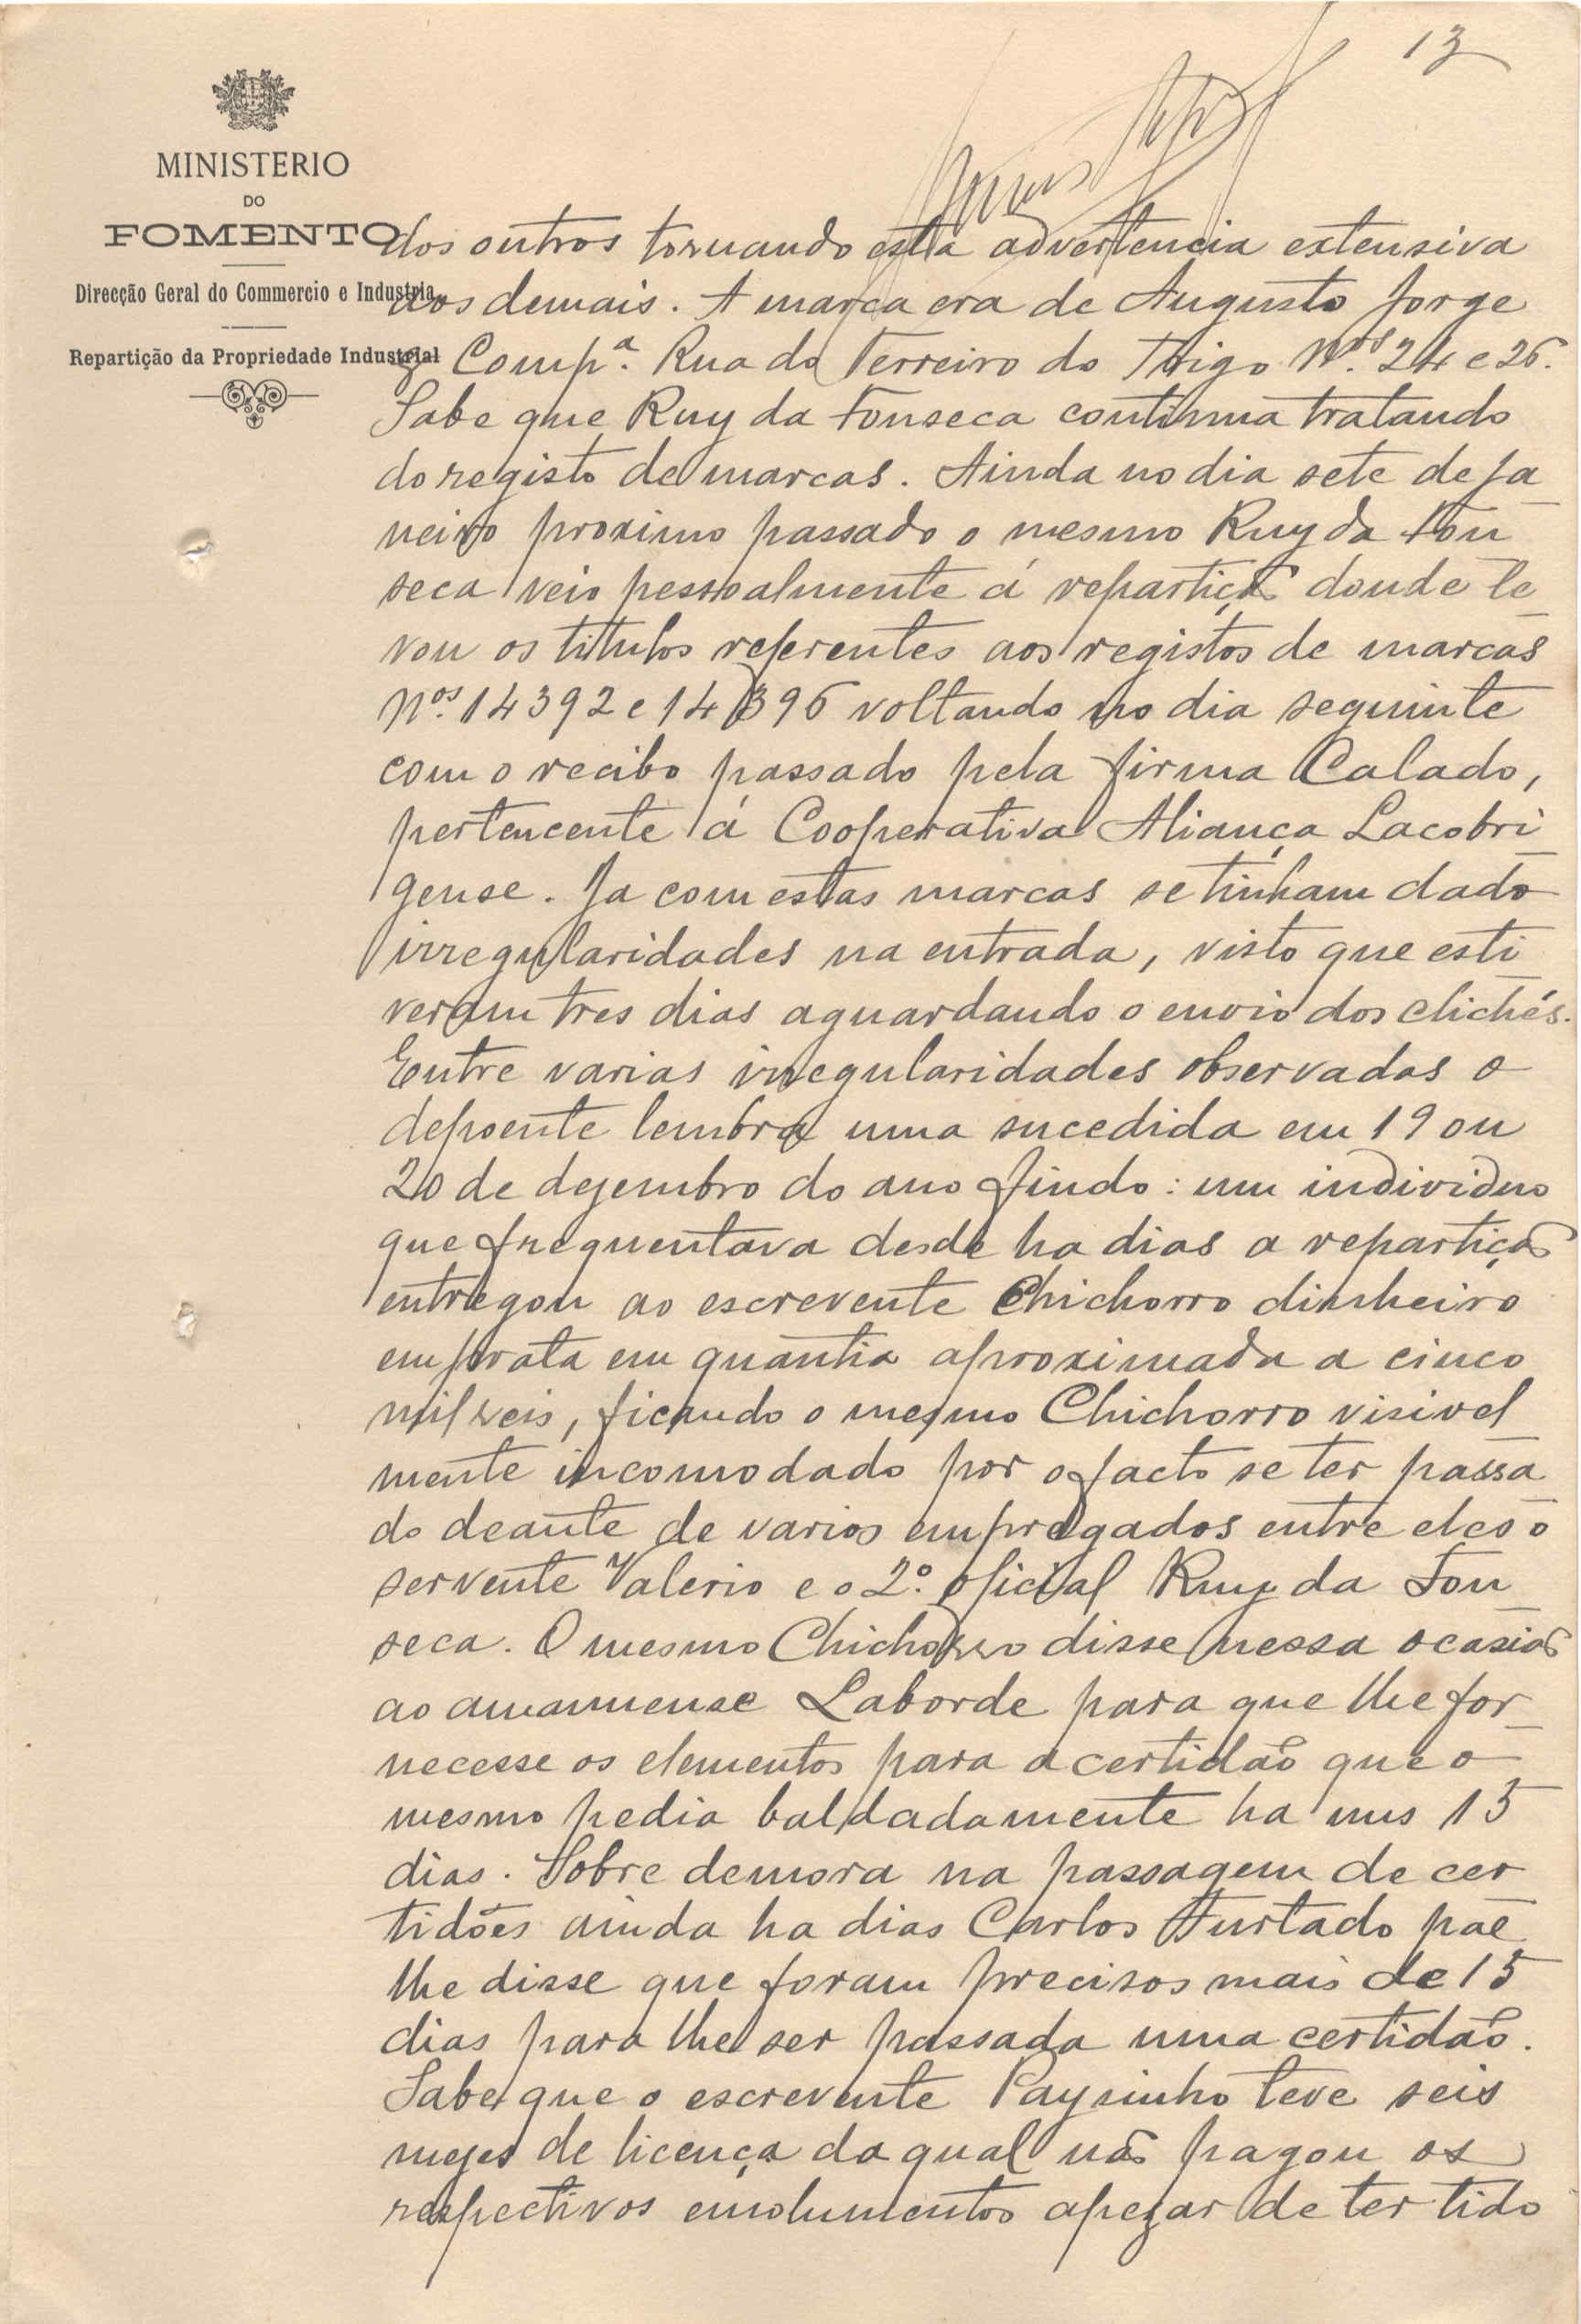 13
MINISTERIO
DO
FOMENTO
Direcção Geral do Commercio e Industria
Repartição da Propriedade Industrial
dos outros tornando esta advertencia extensiva
aos demais. A marca era de Augusto Jorge
& Comp.ª Rua do Terreiro do Trigo N.ºs 24 e 26.
Sabe que Ruy da Fonseca continua tratando
do registo de marcas. Ainda no dia sete de Ja
neiro proximo passado o mesmo Ruy da Fon
seca veio pessoalmente á repartição donde le
vou os titulos referentes aos registos de marcas
N.ºs 14392 e 14396 voltando no dia seguinte
com o recibo passado pela firma Calado,
pertencente á Cooperativa Aliança Lacobri
gense. Ja com estas marcas se tinham dado
irregularidades na entrada, visto que esti
veram tres dias aguardando o envio dos clichés.
Entre varias irregularidades observadas o
depoente lembra uma sucedida em 19 ou
20 de dezembro do ano findo: um individuo
que frequentava desde ha dias a repartição
entregou ao escrevente Chichorro dinheiro
em prata em quantia aproximada a cinco
mil reis, ficando o mesmo Chichorro visivel
mente incomodado por o facto se ter passa
do deante de varios empregados entre eles o
servente Valerio e o 2.º oficial Ruy da Fon
seca. O mesmo Chichorro disse nessa ocasião
ao amanuense Laborde para que lhe for
necesse os elementos para a certidão que o
mesmo pedia baldadamente ha uns 15
dias. Sobre demora na passagem de cer
tidões ainda ha dias Carlos Furtado pae
lhe disse que foram precisos mais de 15
dias para lhe ser passada uma certidão.
Sabe que o escrevente Paysinho teve seis
mezes de licença da qual não pagou os
respectivos emolumentos apezar de ter tido